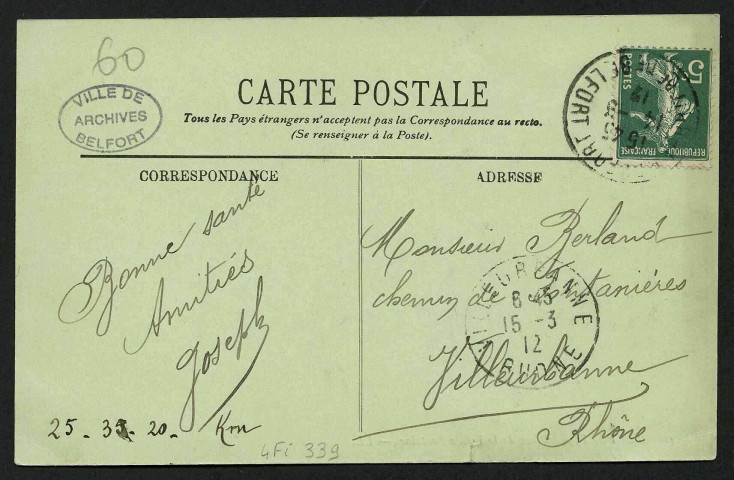 60
VILLE DE
ARCHIVES
BELFORT
CARTE POSTALE
Tous les Pays étrangers n'acceptent pas la Correspondance au recto.
(Se renseigner à la Poste).
5
POSTES
REPUBLIQUE FRANÇAISE
BELFORT
CORRESPONDANCE
Bonne santé
Amitiés
Joseph
25 - 35 - 20 - Km
ADRESSE
Monsieur Berland
chemin de Fontanières
Villeurbanne
Rhône
VILLEURBANNE
8 45
15 - 3
12
RHONE
4Fi 339